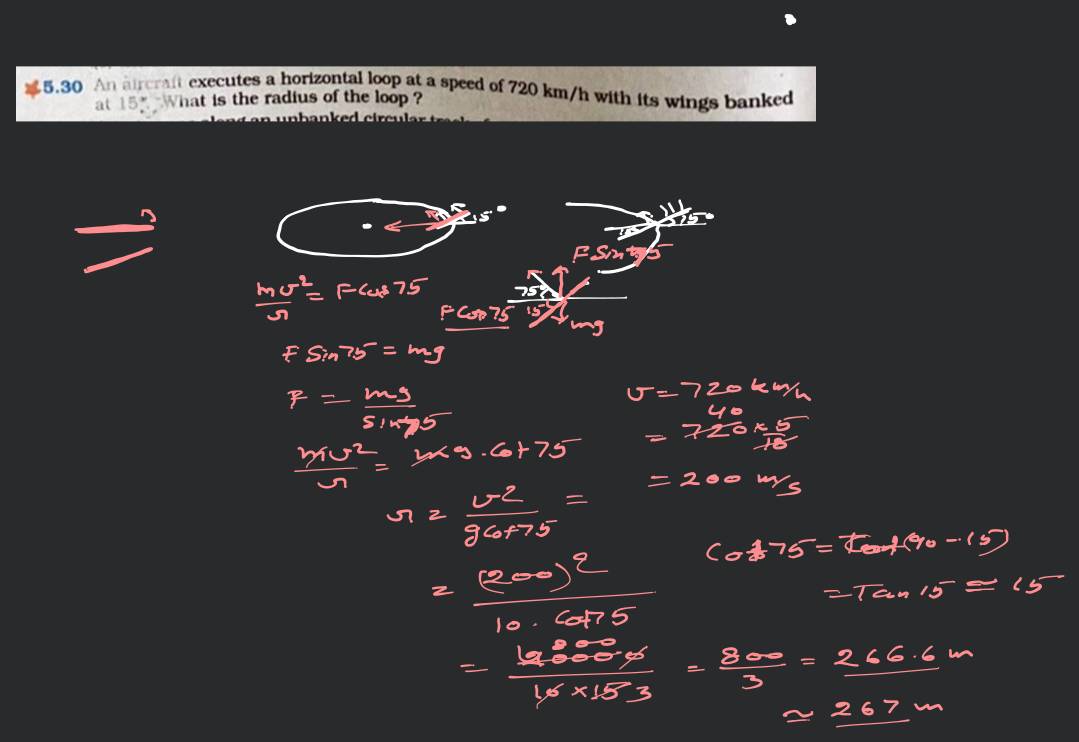 5.30 An aircraft executes a horizontal loop at a speed of 720 km/h with its wings banked
at 15°. What is the radius of the loop ?
an unbanked circular
15°
15°
F Sin 75
mv²/r = F Cos 75
75°
F Cos 75
15°
mg
F Sin 75 = mg
F = mg/sin 75
v = 720 km/h
= 720 × 5/18
40
mv²/r = mg . Cot 75
= 200 m/s
r = v²/g cot 75 =
Cot 75 = Tan (90 - 15)
= Tan 15 ≈ 15
= (200)²/10 . Cot 75
800
= 40000/10 × 15 3 = 800/3 = 266.6 m
≈ 267 m